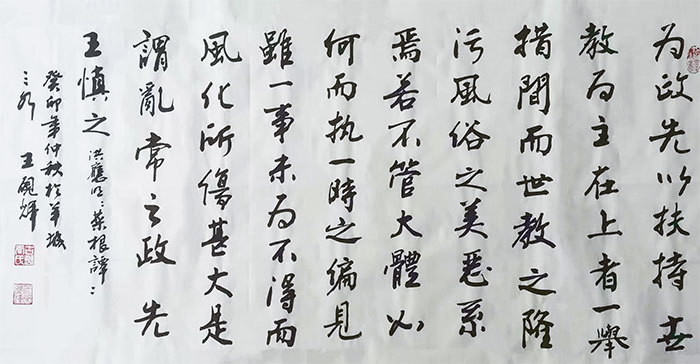 为政先以扶持世
教为主在上者一舉
措間而世教之隆
污風俗之美惡系
焉若不管大體如
何而执一時之偏見
雖一事未为不得而
風化所傷甚大是
謂亂常之政先
王慎之 洪應明:菜根譚:
癸卯年仲秋於羊城
王